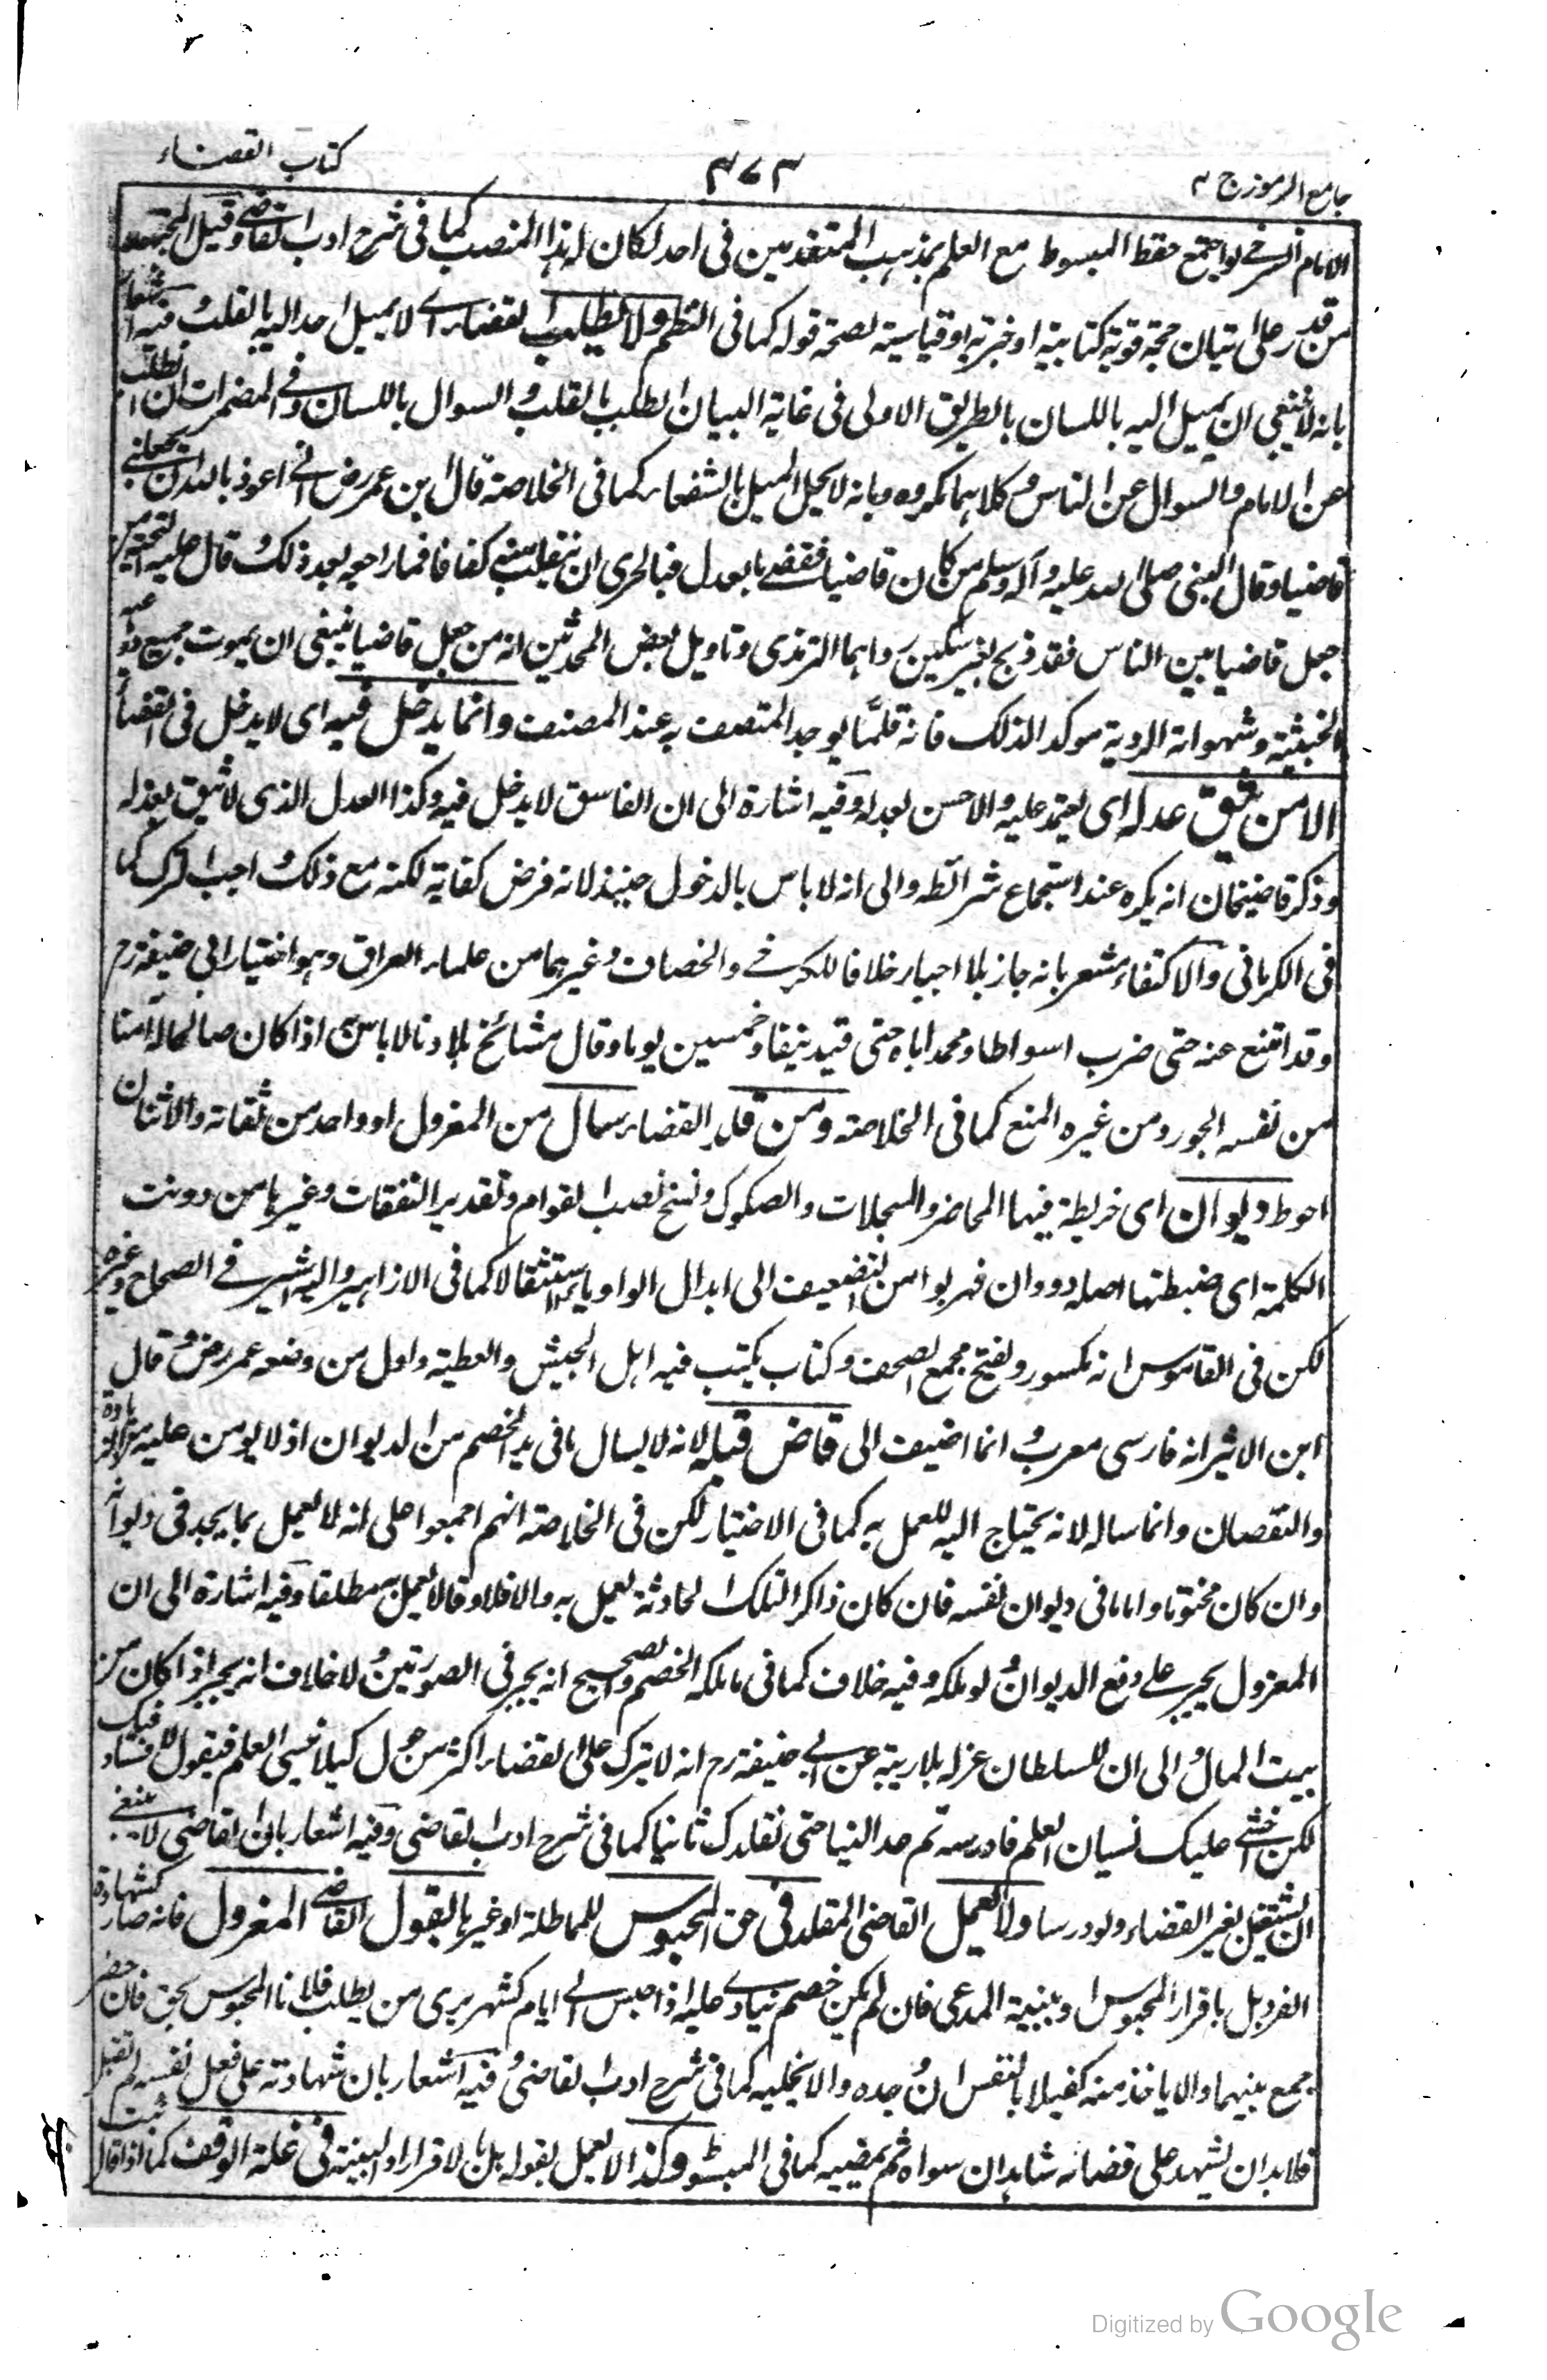 جامع الرموز ج ٢
٣٧٣
كتاب القضاء
الامام السرخسي لو اجتمع حفظ المبسوط مع العلم بمذهب المتقدمين في احد لكان له هذا المنصب كما في شرح ادب القاضي وقيل المجتهد
من قدر على اتيان حجة قوية كتابية او خبرية او قياسية لصحة قوله كما في النظم ولا يطلب القضاء اى لا يميل احد اليه بالقلب فيه اشعار
بانه لا ينبغي ان يميل اليه باللسان بالطريق الاولى في غاية البيان الطلب بالقلب والسوال باللسان وفي المضمرات ان الطلب
عن الامام والسوال عن الناس وكلاهما مكروه وبانه لا يحل الميل بالشفعاء كما في الخلاصة قال ابن عمر رض اني اعوذ بالله ان يجعلني
قاضيا وقال النبى صلى الله عليه وآله وسلم من كان قاضيا فقضى بالعدل فبالحرى ان ينقلب منه كفافا فما راجعه بعد ذلك قال عليه التحية من
جعل قاضيا بين الناس فقد ذبح بغير سكين رواهما الترمذى وتاويل بعض المحدثين انه من جعل قاضيا ينبغى ان يموت جميع دواعيه
الخبيثة وشهواته الردية موكد الذلك فانه قلما يوجد المتصف به عند المصنف وانما يدخل فيه اى لا يدخل فى القضاء
الا من يثق عدله اى يعتمد عليه والاحسن بعدله وفيه اشارة الى ان الفاسق لا يدخل فيه وكذا العدل الذى لا يثق بعدله
وذكر قاضيخان انه يكره عند استجماع شرائطه والى انه لا باس بالدخول حينئذ لانه فرض كفاية لكنه مع ذلك احب الترك كما
فى الكرمانى والاكتفاء مشعر بانه جاز بلا اجبار خلافا للكرخي والخصاف وغيرهما من علماء العراق وهو اختيار ابى حنيفة رح
وقد امتنع عنه حتى ضرب اسواطا ومحمد اباه حتى قيد نيفا وخمسين يوما وقال مشائخ بلادنا لا باس به اذا كان صالحا له آمنا
من نفسه الجور ومن غيره المنع كما فى الخلاصة ومن قلد القضاء سال من المعزول او واحد من ثقاته والاثنان
احوط ديوان اى خريطة فيها المحاضر والسجلات والصكوك ونسخ نصب القوام وتقدير النفقات وغيرها من دونت
الكلمة اى ضبطتها اصله دووان فهربوا من التضعيف الى ابدال الواو ياء استثقالا كما فى الازاهير واليه اشير في الصحاح وغيره
لكن فى القاموس انه مكسور ويفتح مجمع الصحف وكتاب يكتب فيه اهل الجيش والعطية واول من وضعه عمر رض وقال
ابن الاثير انه فارسى معرب وانما اضيف الى قاض قبله لانه لا يسال ما فى يد الخصم من الديوان اذ لا يومن عليه من الزيادة
والنقصان وانما ساله لانه يحتاج اليه للعمل به كما فى الاختيار لكن فى الخلاصة انهم اجمعوا على انه لا يعمل بما يجد فى ديوانه
وان كان مختوما واما ما فى ديوان نفسه فان كان ذاكرا لتلك الحادثة يعمل به والا فلا وقالا يعمل به مطلقا وفيه اشارة الى ان
المعزول يجبر على دفع الديوان لو ملكه وفيه خلاف كما فى ما ملكه الخصم والصحيح انه يجبر فى الصورتين ولا خلاف انه يجبر اذا كان من
بيت المال والى ان للسلطان عزله بلا ريبة عن ابي حنيفة رح انه لا يترك على القضاء اكثر من حول كيلا ينسى العلم فيقول لا فساد فيك
لكن اخشى عليك نسيان العلم فادرسه ثم عد الينا حتى نقلدك ثانيا كما فى شرح ادب القاضى وفيه اشعار بان القاضى لا ينبغي
ان يشتغل بغير القضاء ولو درسا ولا يعمل القاضى المقلد فى حق المحبوس للمماطلة او غيرها بقول القاضى المعزول فانه صار كشهادة
الفرد بل باقرار المحبوس او ببينة المدعى فان لم يكن خصم ينادى عليه اذا جلس اي ايام كشهر يرى من يطلب فلانا المحبوس بحق فان حضر
جمع بينهما والا ياخذ منه كفيلا بالنفس ان وجده والا يخليه كما فى شرح ادب القاضى وفيه اشعار بان شهادته على فعل نفسه لم تقبل
فلا بد ان يشهد على قضائه شاهدان سواه ثم يمضيه كما فى المبسوط وكذا لا يعمل بقوله بل بالاقرار او البينة فى غلة الوقف كما اذا قال ثبت
Digitized by Google